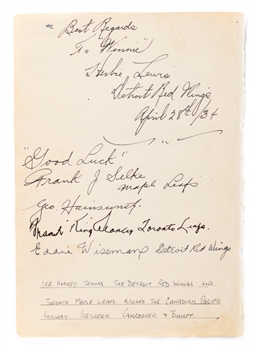 "Best Regards
To "Winnie"
Herbie Lewis
Detroit Red Wings
April 28th/34
"Good Luck"
Frank J Selke
Maple Leafs
Geo. Hainsworth
Frank "King" Clancy Toronto Leafs.
Eddie Wiseman Detroit Red Wings
ICE HOCKEY TEAMS. THE DETROIT RED WINGS AND
TORONTO MAPLE LEAFS. ABOARD THE CANADIAN PACIFIC
RAILWAY BETWEEN VANCOUVER & BANFF.